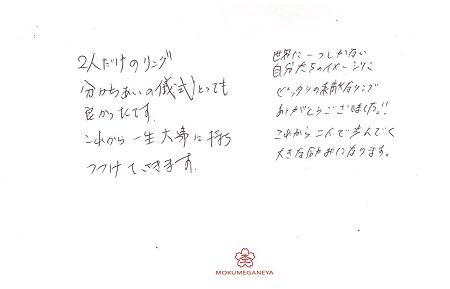 2人だけのリング
分かちあいの(儀式)とっても
良かったです.
これから一生大事に持ち
つづけていきます.
世界に一つしかない
自分たちのイメージに
ピッタリの素敵なリング
ありがとうございました!!
これから二人で歩んでく
大きな励みになります。
MOKUMEGANEYA